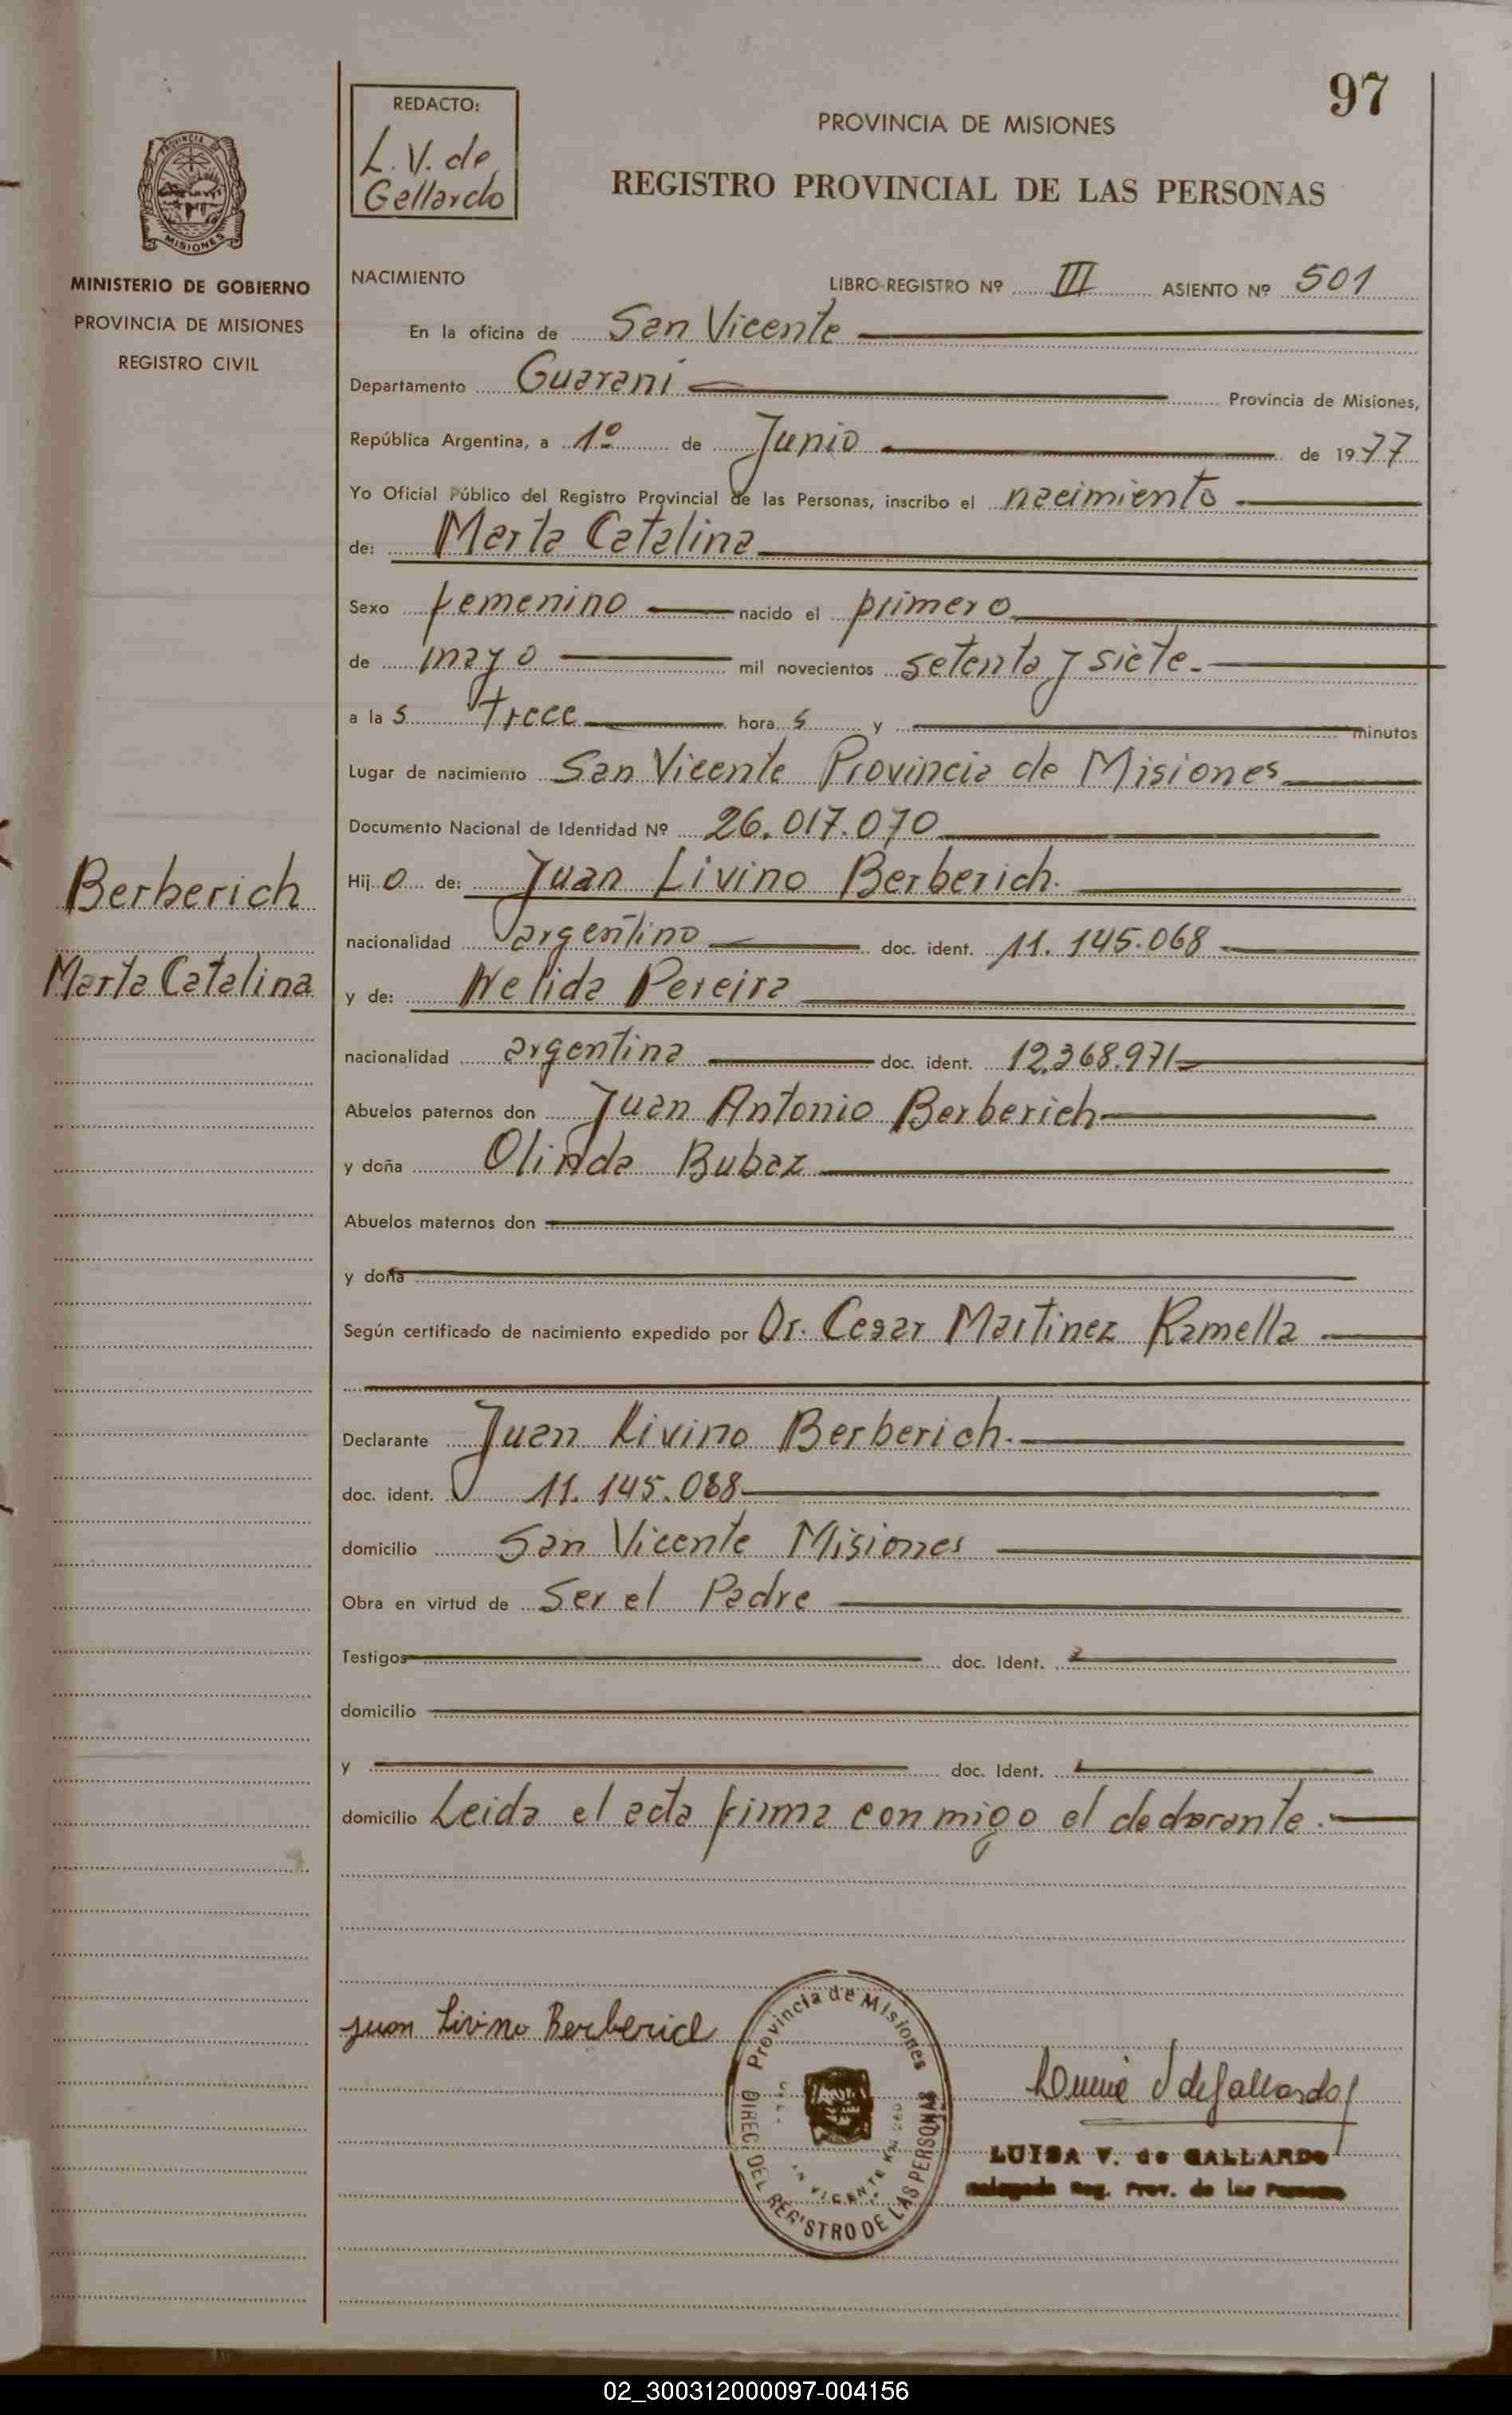 97
REDACTO:
L. V. de
Gallardo
PROVINCIA DE MISIONES
REGISTRO PROVINCIAL DE LAS PERSONAS
MISIONES
MINISTERIO DE GOBIERNO
PROVINCIA DE MISIONES
REGISTRO CIVIL
NACIMIENTO LIBRO REGISTRO Nº III ASIENTO Nº 501
En la oficina de San Vicente
Departamento Guarani Provincia de Misiones,
República Argentina, a 1º de Junio de 1977
Yo Oficial Público del Registro Provincial de las Personas, inscribo el nacimiento
de: Marta Catalina
Sexo femenino nacido el primero
de mayo mil novecientos setenta y siete.
a la s trece hora s y minutos
Lugar de nacimiento San Vicente Provincia de Misiones
Documento Nacional de Identidad Nº 26.017.070
Berberich
Marta Catalina
Hij o de: Juan Livino Berberich.
nacionalidad argentino doc. ident. 11.145.068
y de: Nelida Pereira
nacionalidad argentina doc. ident. 12.368.971
Abuelos paternos don Juan Antonio Berberich
y doña Olinda Bubaz
Abuelos maternos don
y doña
Según certificado de nacimiento expedido por Dr. Cesar Martinez Ramella
Declarante Juan Livino Berberich.
doc. ident. 11.145.088
domicilio San Vicente Misiones
Obra en virtud de Ser el Padre
Testigos doc. Ident.
domicilio
y doc. Ident.
domicilio Leida el acta firma conmigo el declarante.
Juan Livino Berberich
Provincia de Misiones
DIREC. DEL REGISTRO DE LAS PERSONAS
LUISA V. de GALLARDO
Delegada Reg. Prov. de las Personas
02_300312000097-004156